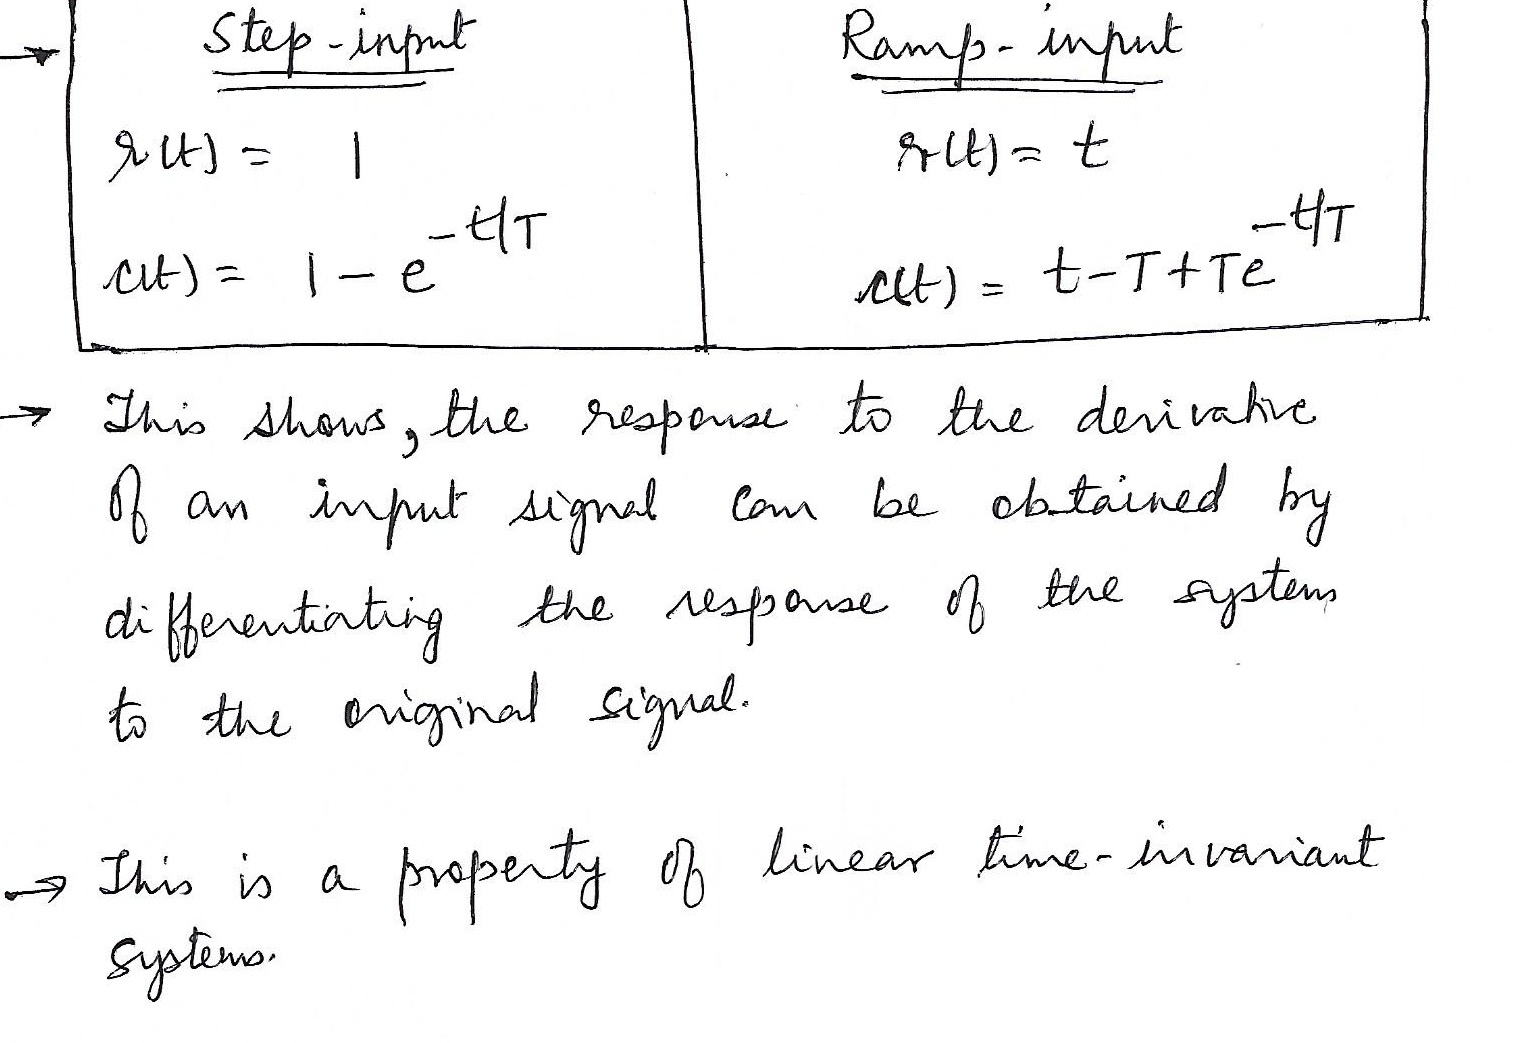 → Step-input Ramp-input
r(t) = 1 r(t) = t
c(t) = 1 - e^{-t/T} c(t) = t-T+Te^{-t/T}
→ This shows, the response to the derivative
of an input signal can be obtained by
differentiating the response of the system
to the original signal.
→ This is a property of linear time-invariant
systems.